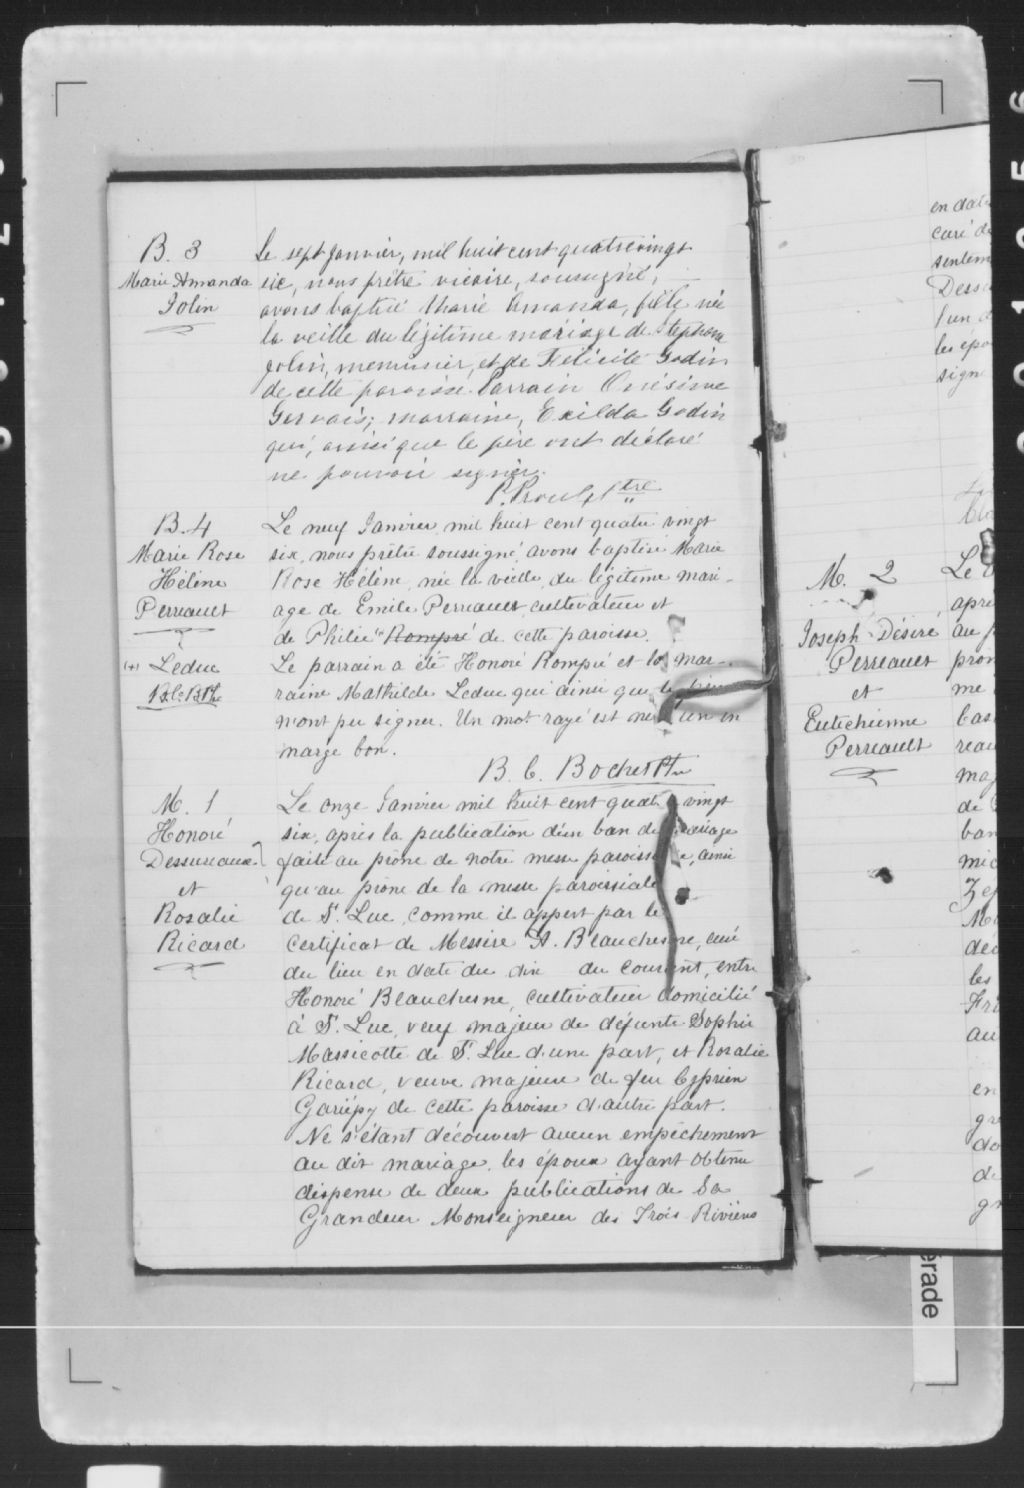 B. 3
Marie Amanda
Jolin
Le sept Janvier, mil huit cent quatrevingt
six, nous prêtre vicaire, soussigné,
avons baptisé Marie Amanda, fille née
la veille du légitime mariage de Stephane
Jolin, menuisier, et de Félicité Godin
de cette paroisse. Parrain Onésime
Gervais; marraine, Exilda Godin
qui, ainsi que le père ont déclaré
ne pouvoir signer.
P. Proulx Ptre
B. 4
Marie Rose
Hélène
Perreault
(+) Leduc
B.C.B. Ptre
Le neuf Janvier mil huit cent quatre vingt
six, nous prêtre soussigné avons baptisé Marie
Rose Hélène, née la veille, du légitime mari-
age de Emile Perreault, cultivateur et
de Philie + Rompré de cette paroisse.
Le parrain a été Honoré Rompré et la mar-
raine Mathilde Leduc qui ainsi que le père
n'ont pu signer. Un mot rayé est nul un en
marge bon.
B. C. Bochet Ptre
M. 1
Honoré
Dessureaux
et
Rosalie
Ricard
Le onze Janvier mil huit cent quatre vingt
six, après la publication d'un ban de mariage
faite au prône de notre messe paroissiale, ainsi
qu'au prône de la messe paroissiale
de St. Luc, comme il appert par le
certificat de Messire A. Beauchesne, curé
du lieu en date du dix du courant, entre
Honoré Beauchesne, cultivateur domicilié
à St. Luc, veuf majeur de défunte Sophie
Massicotte de St. Luc d'une part, et Rosalie
Ricard, veuve majeure de feu Cyprien
Gariépy de cette paroisse d'autre part.
Ne s'étant découvert aucun empêchement
au dit mariage, les époux ayant obtenu
dispense de deux publications de Sa
Grandeur Monseigneur des Trois Rivières
en date
curé de
sentem
Dess
l'un d
les épo
sign
M. 2
Joseph Désiré
Perreault
et
Eutichienne
Perreault
Le
apre
au p
pron
me
bas
reau
maj
de
ban
mic
Zep
M
dec
les
Fr
au
en
gr
do
de
gr
érade